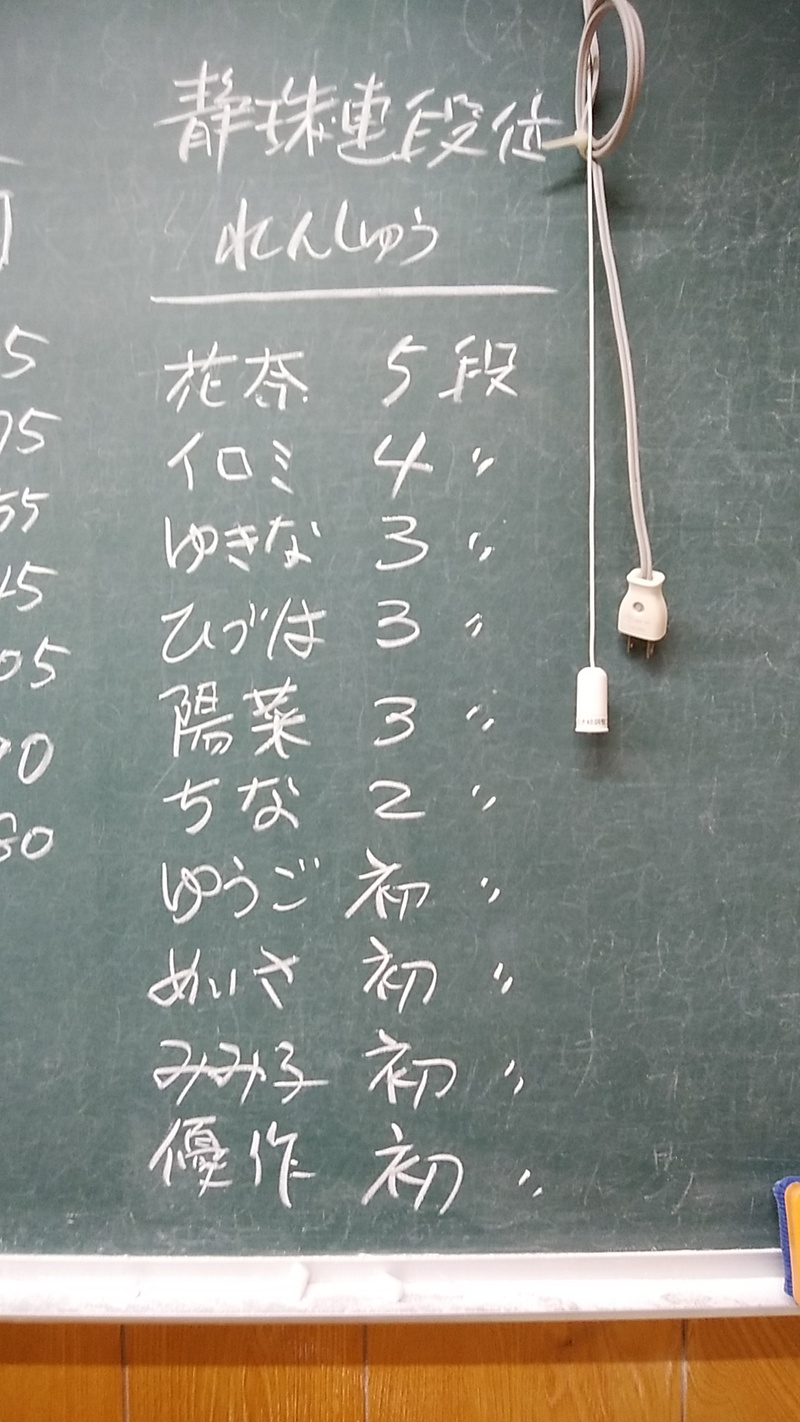 静珠連段位
れんしゅう
花奈 5段
イロミ 4 〃
ゆきな 3 〃
ひづは 3 〃
陽菜 3 〃
ちな 2 〃
ゆうご 初 〃
めいさ 初 〃
みみ子 初 〃
優作 初 〃
5
75
55
45
05
90
80